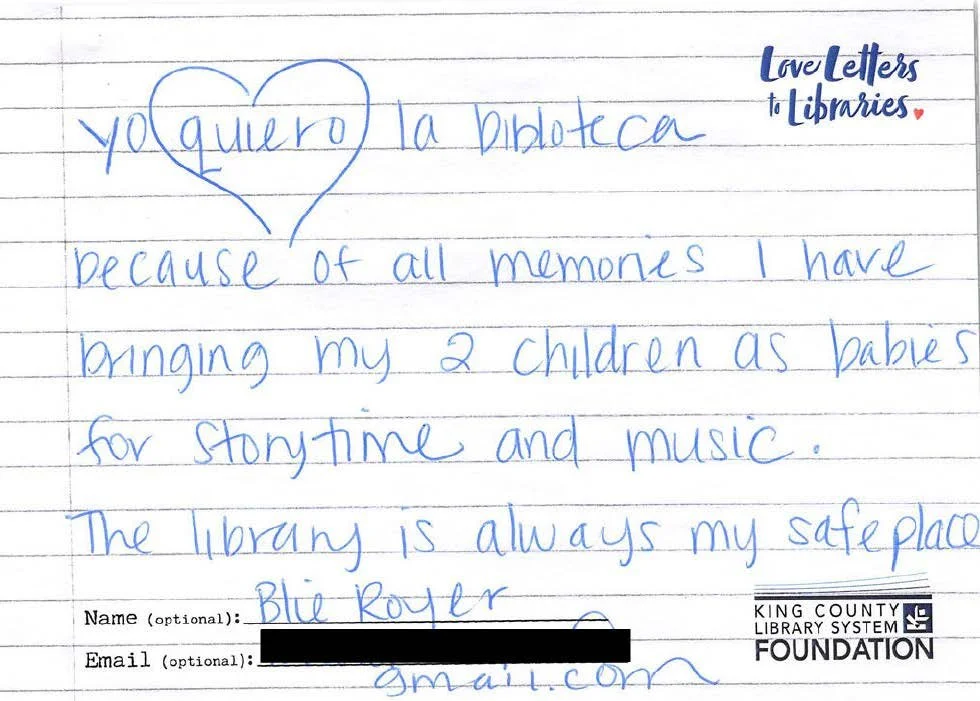 Love Letters
to Libraries.
yo quiero la bibloteca
because of all memories I have
bringing my 2 children as babies
for storytime and music.
The library is always my safe place
Name (optional): Blie Royer
Email (optional):
gmail.com
KING COUNTY
LIBRARY SYSTEM
FOUNDATION